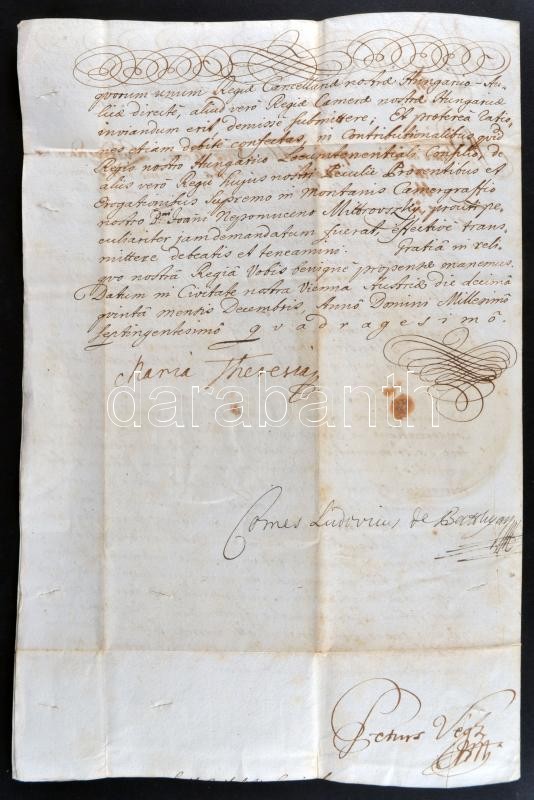 quorum unum Regiæ Cancellariæ nostræ Hungarico-Au-
licæ directe, aliud vero Regiæ Cameræ nostræ Hungaricæ
inviandum erit demisse submittere; Et proterea Ratio-
nes etiam debite confectas, in Contributionalibus quidem
Regio nostro Hungarico Locumtenentiali Consilio, de
aliis vero Regni hujus nostri Peculii Proventibus et
Erogationibus Supremo in Montanis Camergraffio
nostro Joanni Nepomuceno Mittrovszky, prout pe-
culiariter jam demandatum fuerat, effective trans-
mittere debeatis et teneamini. Gratiâ in reli-
quo nostrâ Regiâ Vobis benigne propense manemus.
Datum in Civitate nostra Vienna Austriæ die decimâ
quintâ mensis Decembris, Annô Domini Millesimô
Septingentesimô quadragesimô.
Maria Theresia
darabanth
Comes Ludovicus de Batthyan
Petrus Végh